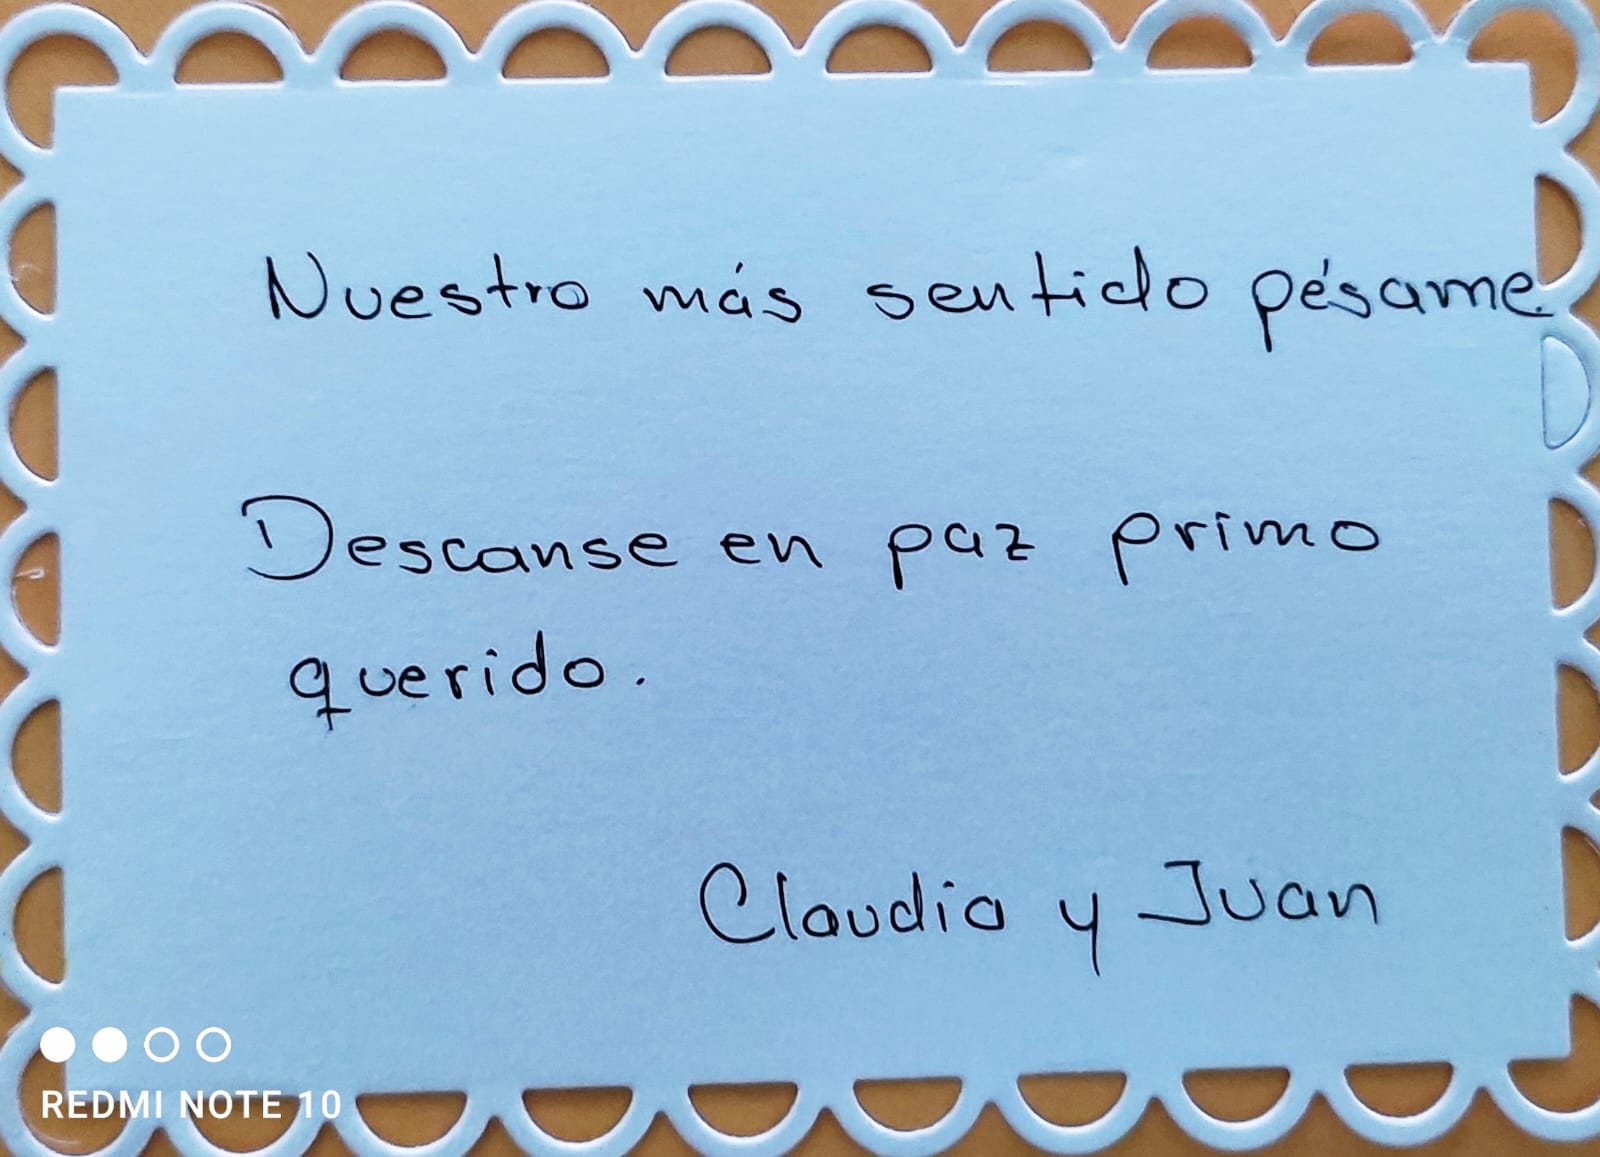 Nuestro más sentido pésame.
Descanse en paz primo
querido.
Claudia y Juan
REDMI NOTE 10